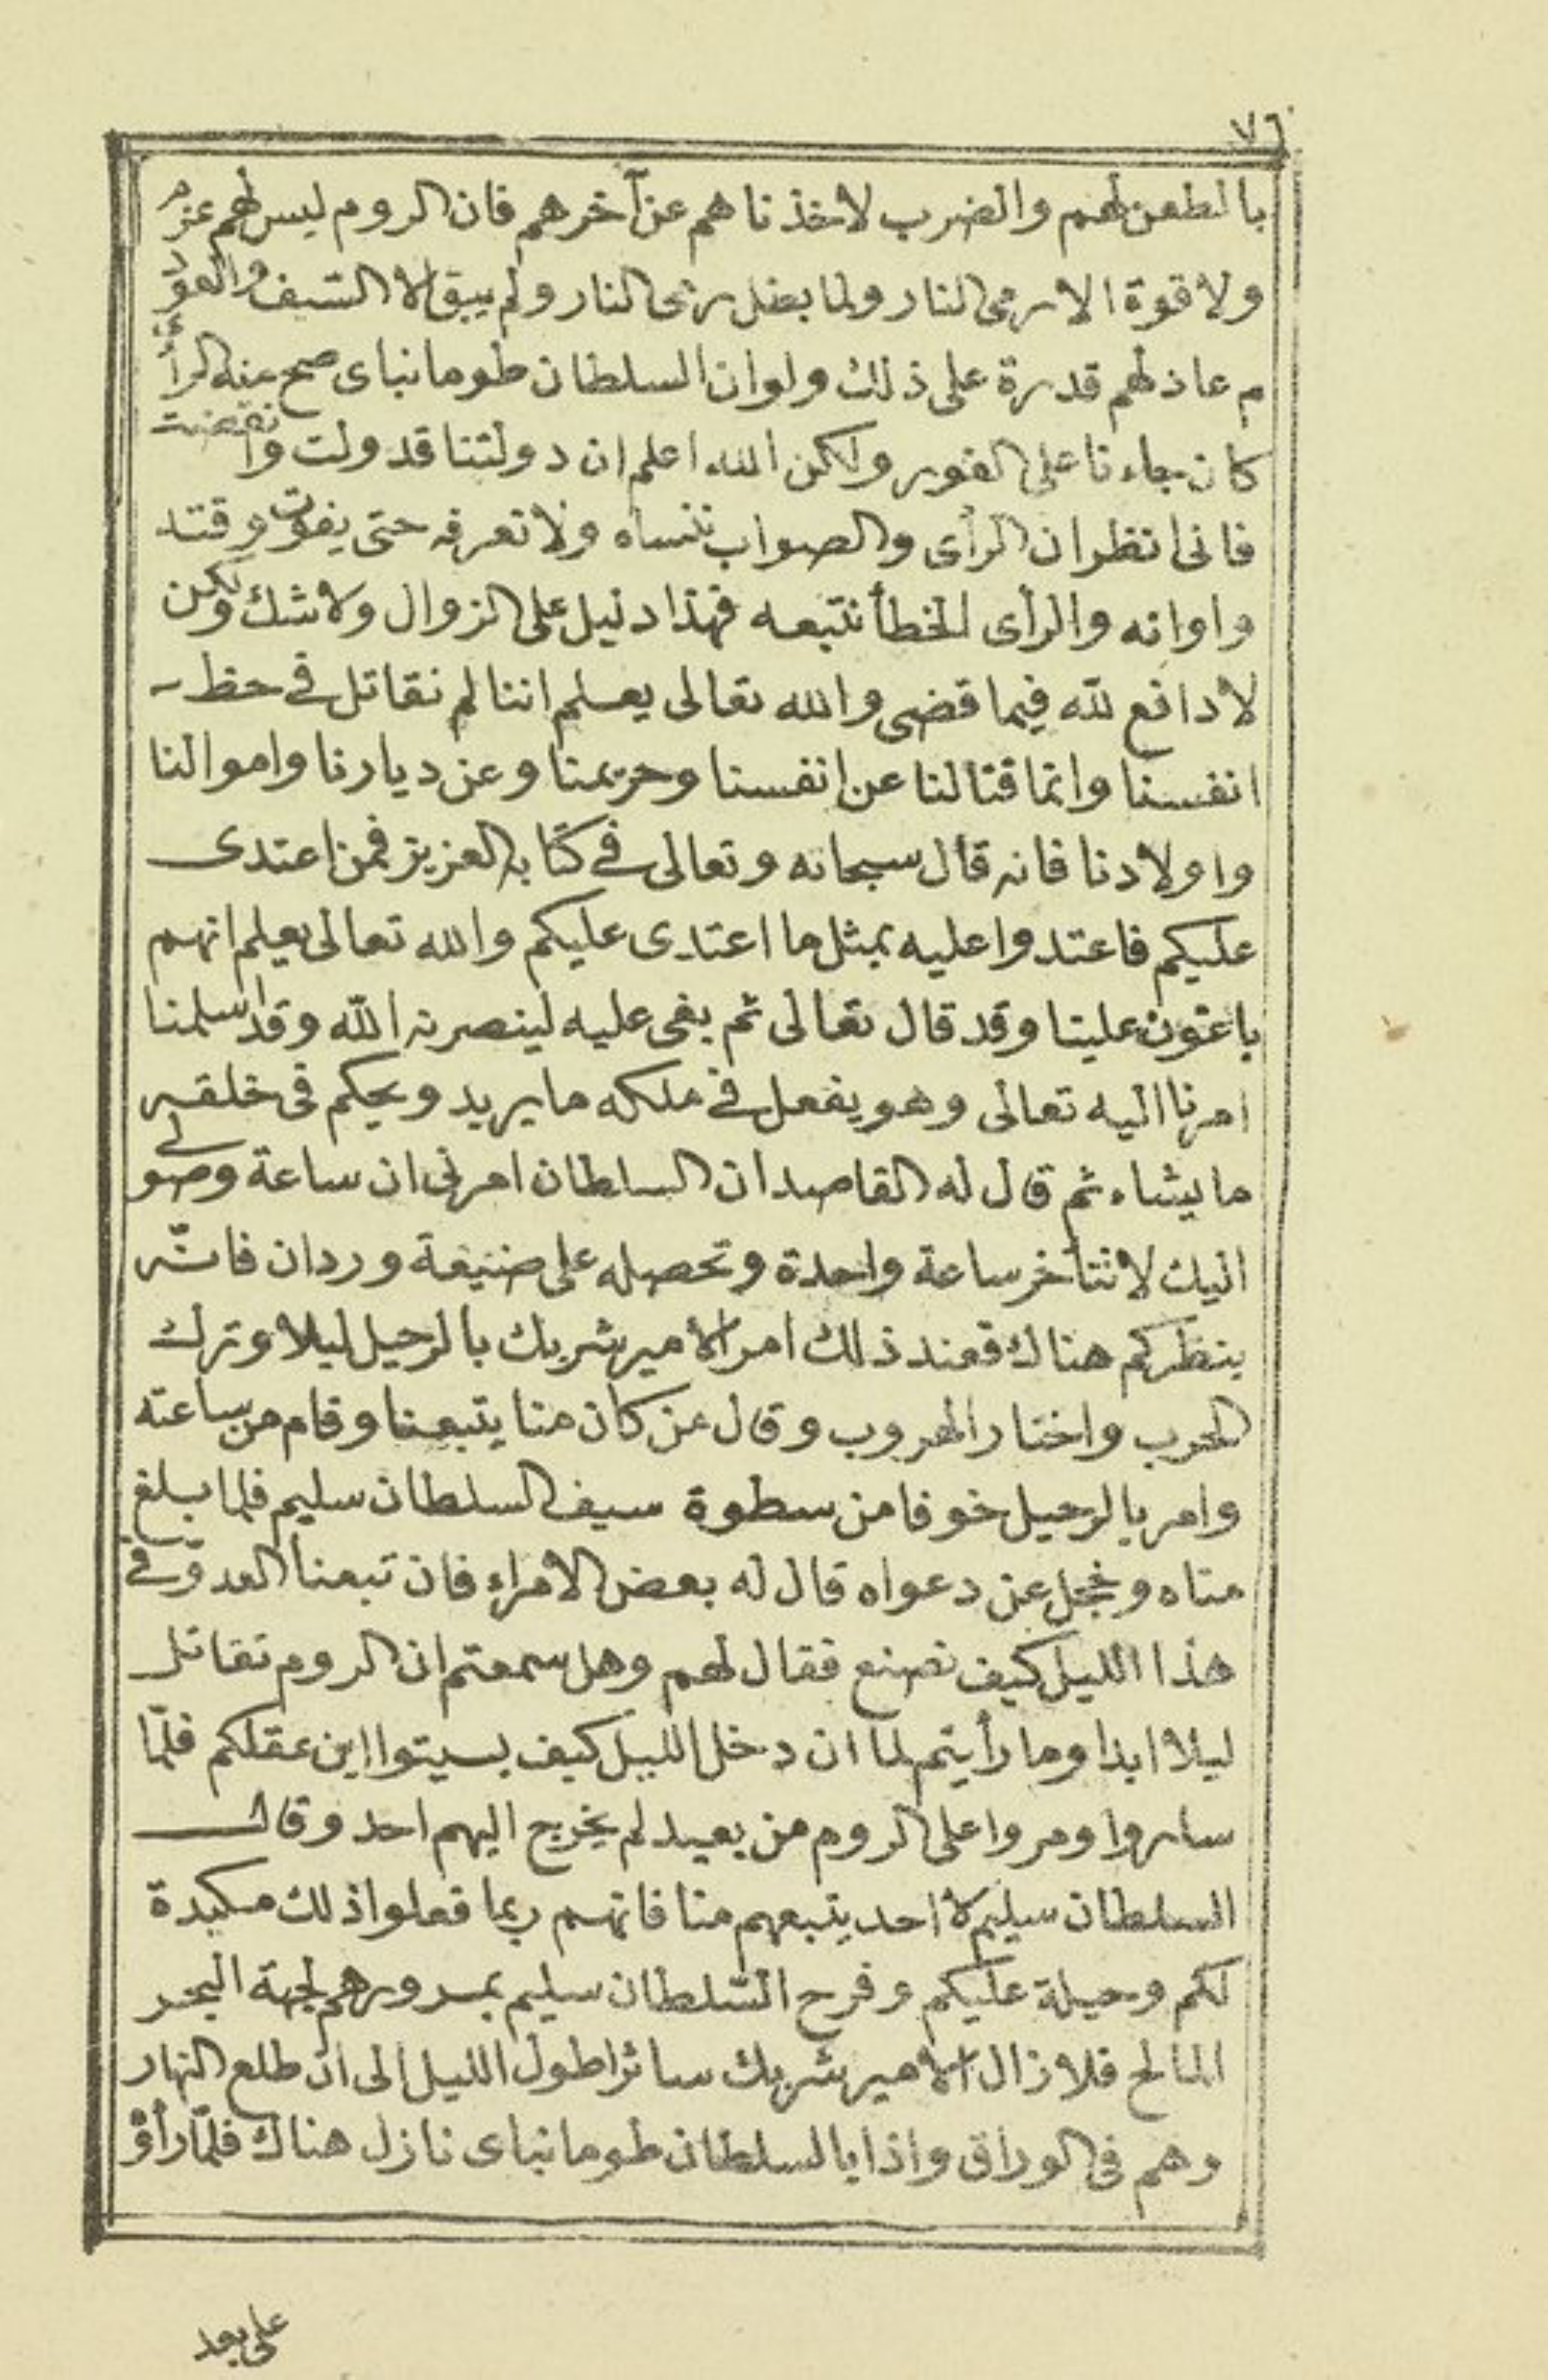 ٧٦
بالطعن لهم والضرب لاخذناهم عن آخرهم فان الروم ليس لهم عزم
ولا قوة الا رمى النار ولما بطل رمى النار ولم يبق الا السّيف والعود
م عاد لهم قدرة على ذلك ولو ان السلطان طومانباى صح عنه الرأى
كان جاءنا على الفور ولكن الله اعلم ان دولتنا قد ولت وانقضت
فانى انظر ان الرأى والصواب ننساه ولا نعرفه حتى يفوت وقته
واوانه والرأى الخطأ نتبعه فهذا دليل على الزوال ولا شك ولكن
لا دافع لله فيما قضى والله تعالى يعلم اننا لم نقاتل فى حظ
انفسنا وانما قتالنا عن انفسنا وحريمنا وعن ديارنا واموالنا
واولادنا فانه قال سبحانه وتعالى فى كتابه العزيز فمن اعتدى
عليكم فاعتدوا عليه بمثل ما اعتدى عليكم والله تعالى يعلم انهم
باغون علينا وقد قال تعالى ثم بغى عليه لينصرنه الله وقد اسلمنا
امرنا اليه تعالى وهو يفعل فى ملكه ما يريد ويحكم فى خلقه
ما يشاء ثم قال له القاصد ان السلطان امرنى ان ساعة وصولى
اليك لا نتأخر ساعة واحدة وتحصله على ضيعة وردان فانّه
ينظركم هناك فعند ذلك امر الأمير شربك بالرحيل ليلا وترك
الحرب واختار الهروب وقال من كان منا يتبعنا وقام من ساعته
وامر بالرحيل خوفا من سطوة سيف السلطان سليم فلما بلغ
مناه وخجل عن دعواه قال له بعض الأمراء فان تبعنا العدوّ فى
هذا الليل كيف نصنع فقال لهم وهل سمعتم ان الروم تقاتل
ليلا ابدا وما رأيتم لما ان دخل الليل كيف بسيتوا اين عقلكم فلمّا
ساروا ومروا على الروم من بعيد لم يخرج اليهم احد وقال
السلطان سليم لا احد يتبعهم منا فانهم ربما فعلوا ذلك مكيدة
لكم وحيلة عليكم وفرح السّلطان سليم بمرورهم لجهة البحر
المالح فلا زال الأمير شربك سائرا طول الليل الى ان طلع النهار
وهم فى الوراق واذا بالسلطان طومانباى نازل هناك فلمّا رأوْ
على بعد